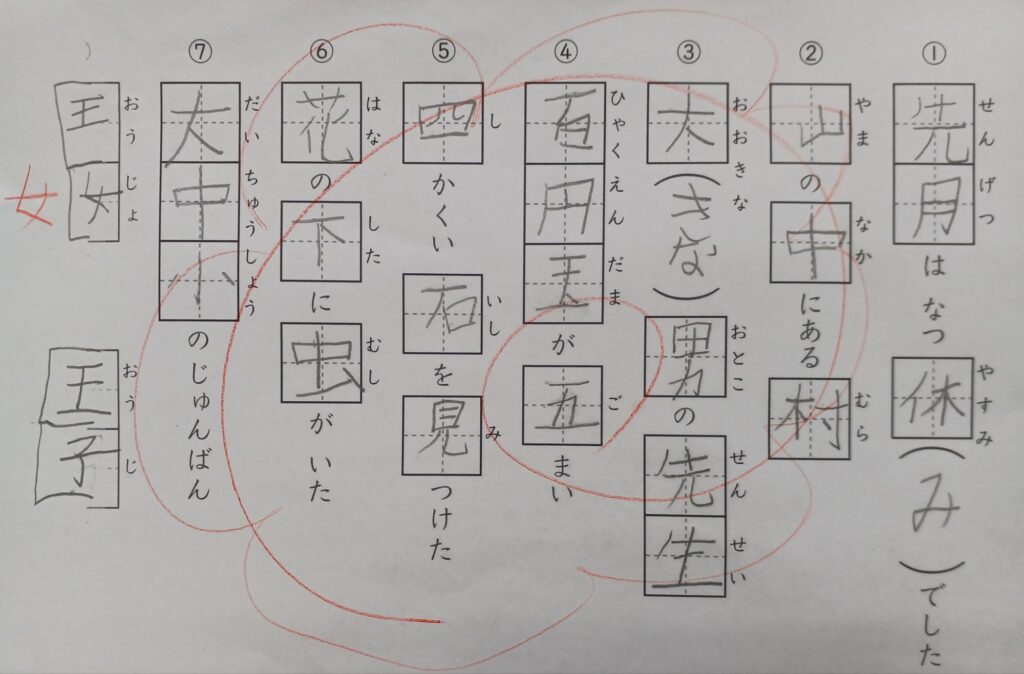 ① 先月はなつ休(み)でした
せんげつ やすみ
② 山の中にある村
やま なか むら
③ 大(きな)男の先生
おおきな おとこ せんせい
④ 百円玉が五まい
ひゃくえんだま ご
⑤ 四かくい石を見つけた
し いし み
⑥ 花の下に虫がいた
はな した むし
⑦ 大中小のじゅんばん
だいちゅうしょう
) 王女 王子
おうじょ おうじ
女